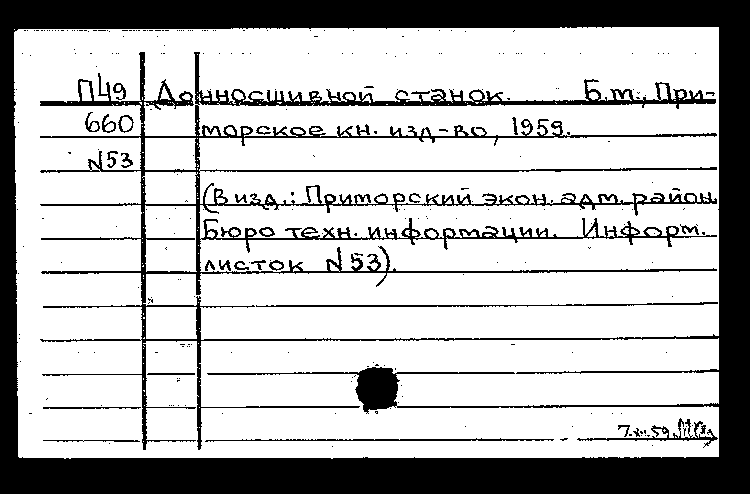 П49 Донносшивной станок. Б.м., При-
660 морское кн. изд-во, 1959.
N53
(В изд.: Приморский экон. адм. район.
Бюро техн. информации. Информ.
листок N53).
7.XII.59